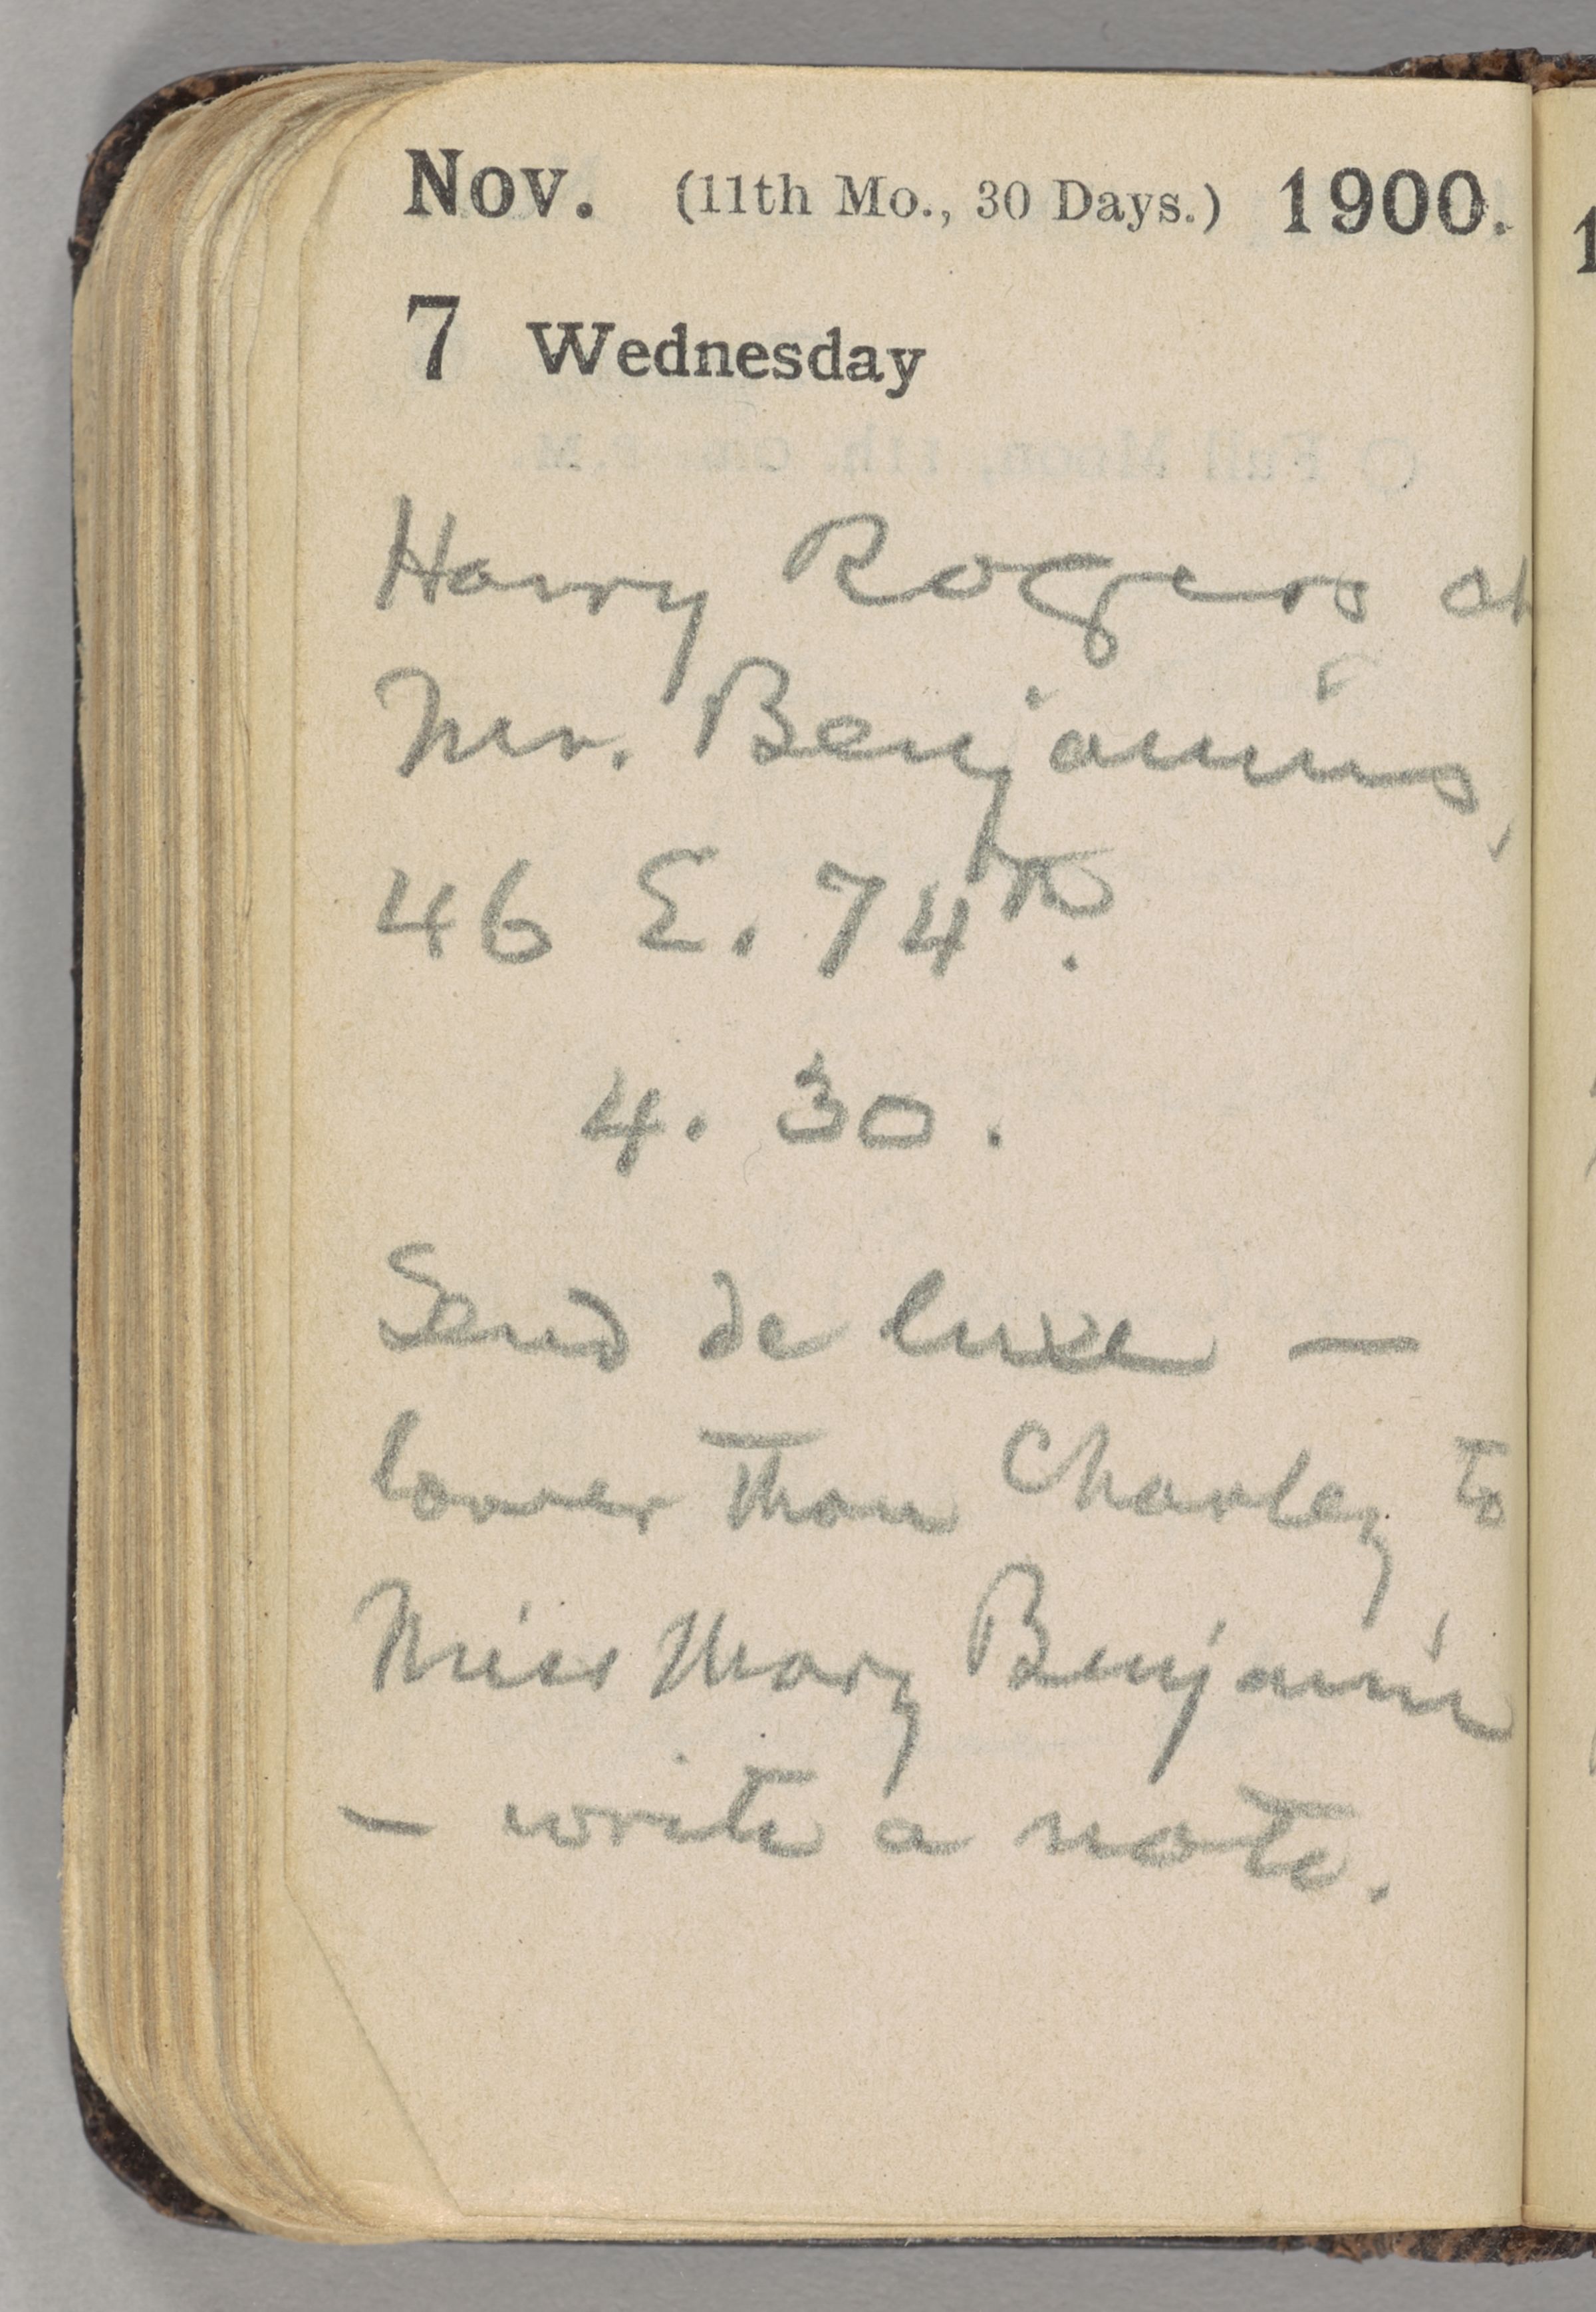 Nov. (11th Mo., 30 Days.) 1900.
7 Wednesday
Harry Rogers at
Mr. Benjamins,
46 E. 74th.
4. 30.
Send de luxe —
lower than Charley to
Miss Mary Benjamin
— write a note.